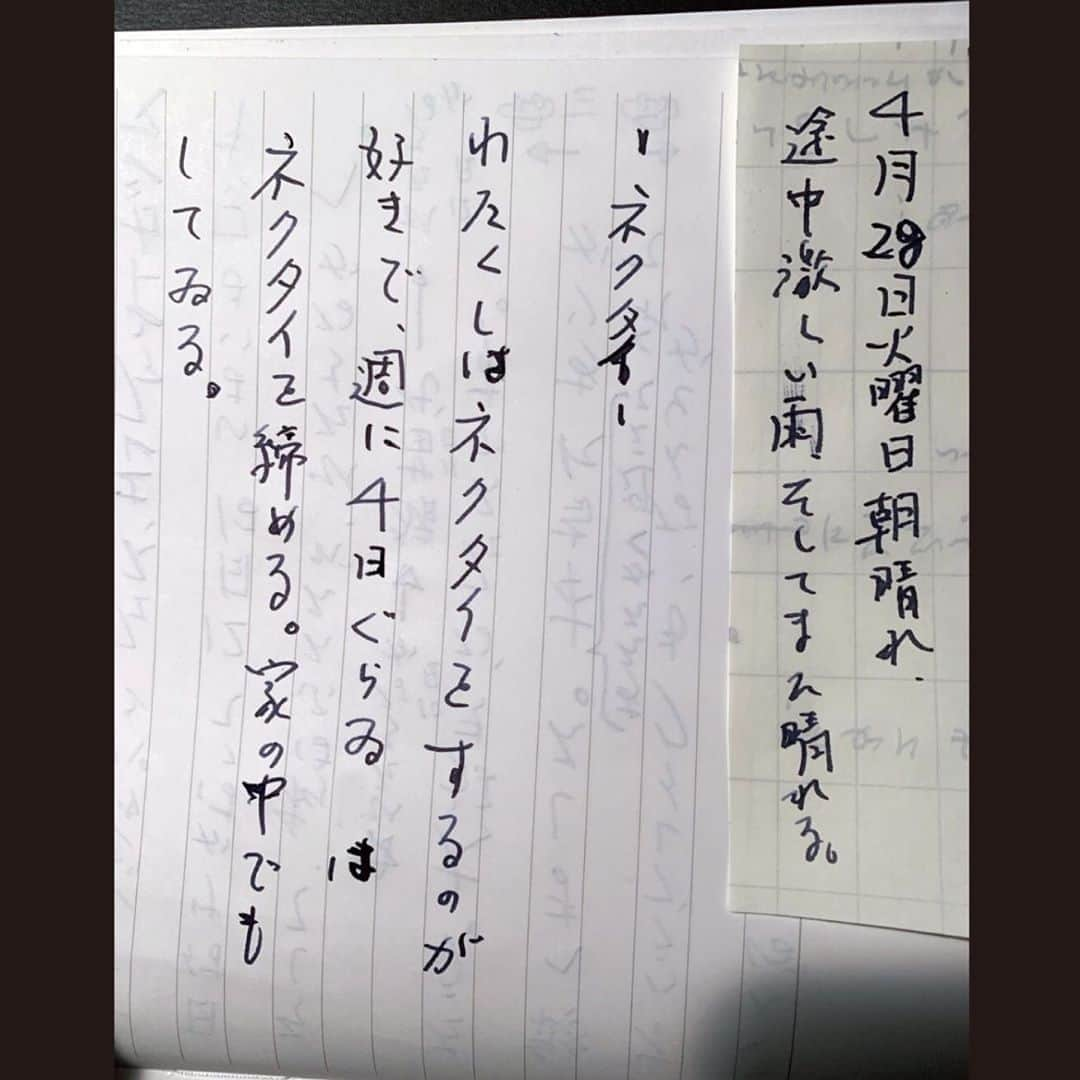 4月28日火曜日朝晴れ.
途中激しい雨、そしてまた晴れる。
ーネクターー
わたくしはネクタイをするのが
好きで、週に4日ぐらゐは
ネクタイを締める。家の中でも
してゐる。